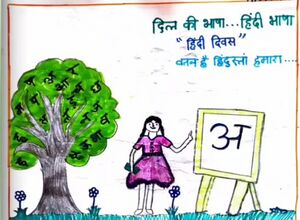 दिल की भाषा...हिंदी भाषा
"हिंदी दिवस"
है हिंदुस्तां हमारा...
अ